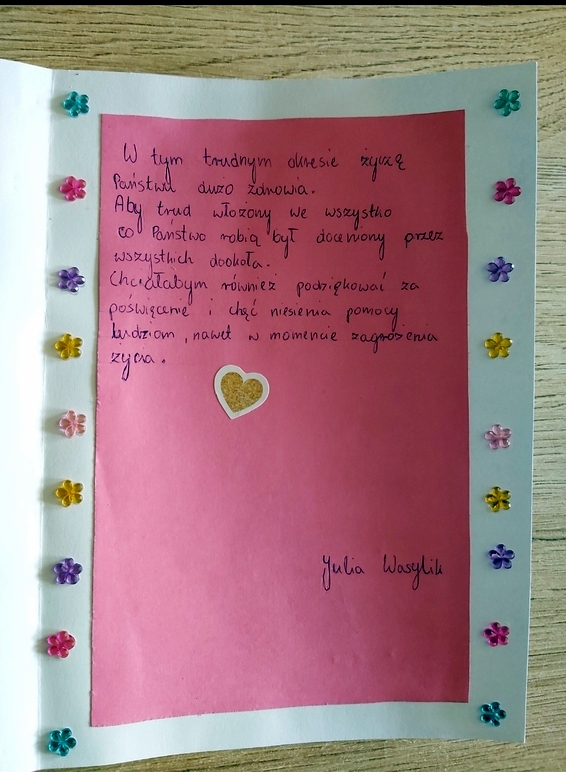 W tym trudnym okresie życzę
Państwu dużo zdrowia.
Aby trud włożony we wszystko
co Państwo robią był doceniony przez
wszystkich dookoła.
Chciałabym również podziękować za
poświęcenie i chęć niesienia pomocy
ludziom, nawet w momencie zagrożenia
życia.
Julia Wasylik